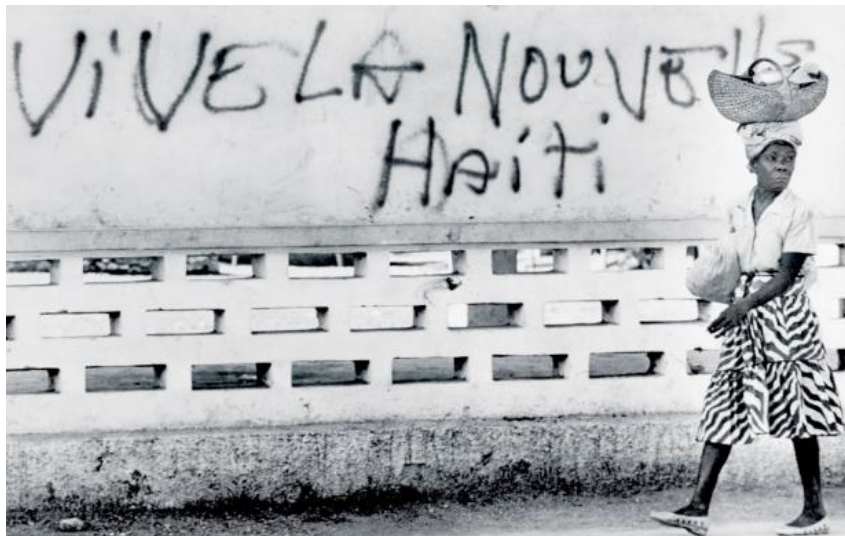 ViVE LA NOUVEllE
HAiTi